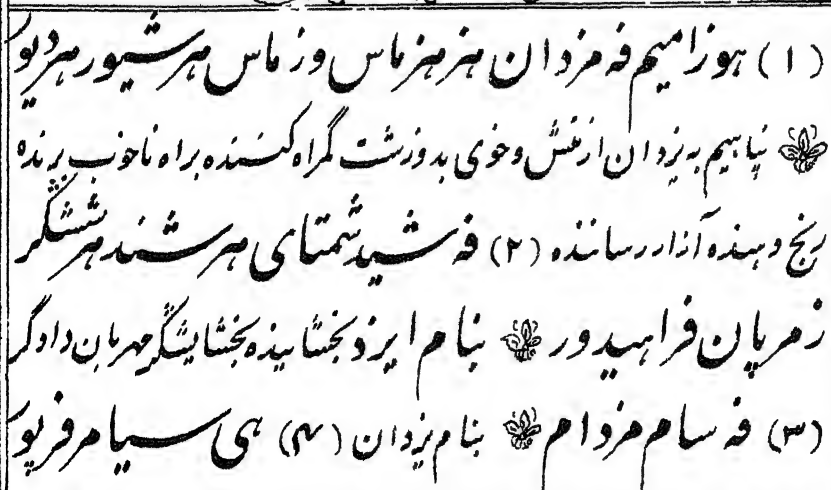 (۱) هوزامیم فه مزدان هزهزماس وزماس هرشیور هردیور
پناهیم به یزدان از منش و خوی بد و زشت گمراه کننده براه ناخوب برنده
رنج دهنده آزار رساننده (۲) فه شید شمتای هرشنده هرششگر
زمرپان فراهیدور بنام ایزد بخشاینده بخشایشگر مهربان دادگر
(۳) فه سام مزدام بنام یزدان (۴) هی سیامرفرپو